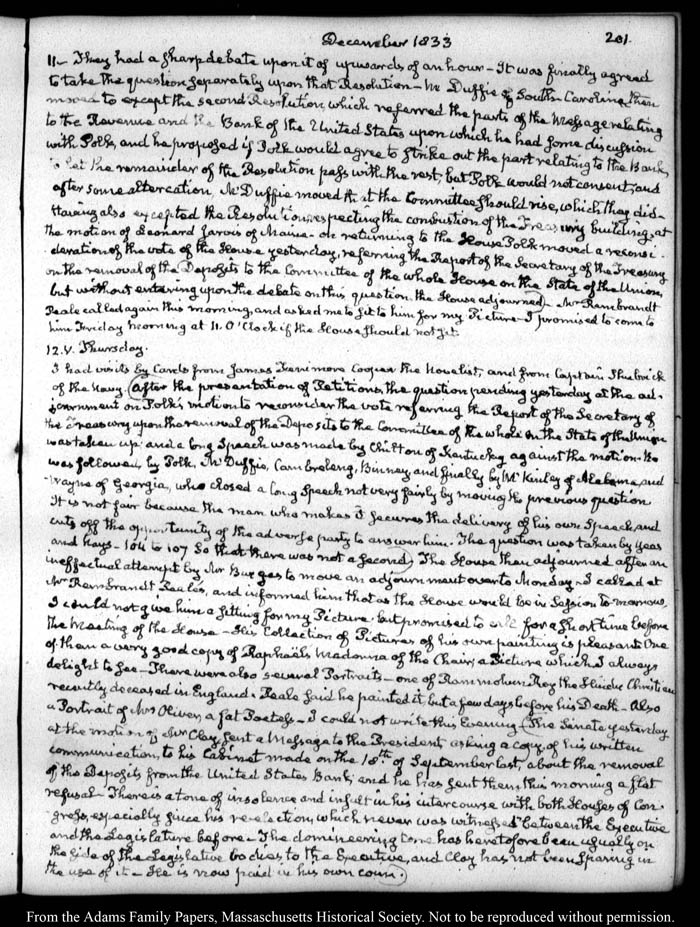 December 1833
201.
11— They had a sharp debate upon it of upwards of an hour— It was finally agreed
to take the question separately upon that Resolution— McDuffie of South Carolina then
moved to except the second Resolution, which referred the parts of the Message relating
to the Revenue and the Bank of the United States upon which he had some discussion
with Polk, and he proposed if Polk would agree to strike out the part relating to the Bank,
to let the remainder of the Resolution pass with the rest, but Polk would not consent, and
after some altercation McDuffie moved that the Committee should rise, which they did—
Having also excepted the Resolution respecting the combustion of the Treasury building, at
the motion of Leonard Jarvis of Maine— On returning to the House Polk moved a reconsi-
deration of the vote of the House yesterday, referring the Report of the Secretary of the Treasury
on the removal of the Deposits to the Committee of the whole House on the State of the Union,
but without entering upon the debate on this question the House adjourned— Mr Rembrandt
Peale called again this morning, and asked me to sit to him for my Picture— I promised to come to
him Friday morning at 11. O'Clock if the House should not sit.
12. V. Thursday.
I had visits by Cards from James Fennimore Cooper the Novelist, and from Captain Shubrick
of the Navy. (After the presentation of Petitions, the question pending yesterday at the ad-
journment on Polk's motion to reconsider the vote referring the Report of the Secretary of
the Treasury upon the removal of the Deposits to the Committee of the whole on the State of the Union
was taken up and a long Speech was made by Chilton of Kentucky against the motion. He
was followed by Polk, McDuffie, Cambreleng, Binney and finally by McKinley of Alabama, and
Wayne of Georgia, who closed a long Speech not very fairly by moving the previous question
It is not fair because the man who makes it secures the delivery of his own Speech, and
cuts off the opportunity of the adverse party to answer him. The question was taken by yeas
and Nays— 104 to 107 So that there was not a second) The House then adjourned after an
ineffectual attempt by Mr Burges to move an adjournment over to Monday. I called at
Mr Rembrandt Peale's, and informed him that as the House would be in Session to-morrow,
I could not give him a sitting for my Picture. but promised to call for a short time before
the meeting of the House— His Collection of Pictures of his own painting is pleasant. One
of them a very good copy of Raphael's Madonna of the Chair, a Picture which I always
delight to see— There were also several Portraits— one of Rammohun Roy the Hindu Christian
recently deceased in England. Peale said he painted it but a few days before his Death— Also
a Portrait of Mrs Oliver, a fat Poetess— I could not write this Evening (The Senate yesterday
at the motion of Mr Clay, sent a Message to the President, asking a copy of his written
communication, to his Cabinet made on the 18th of September last, about the removal
of the Deposits from the United States Bank, and he has sent them this morning a flat
refusal— There is a tone of insolence and insult in his intercourse with both Houses of Con-
gress, especially since his re-election, which never was witnessed between the Executive
and the Legislature before— The domineering tone has heretofore been usually on
the side of the Legislative bodies, to the Executive, and Clay has not been sparing in
the use of it— He is now paid in his own coin.)
From the Adams Family Papers, Massachusetts Historical Society. Not to be reproduced without permission.